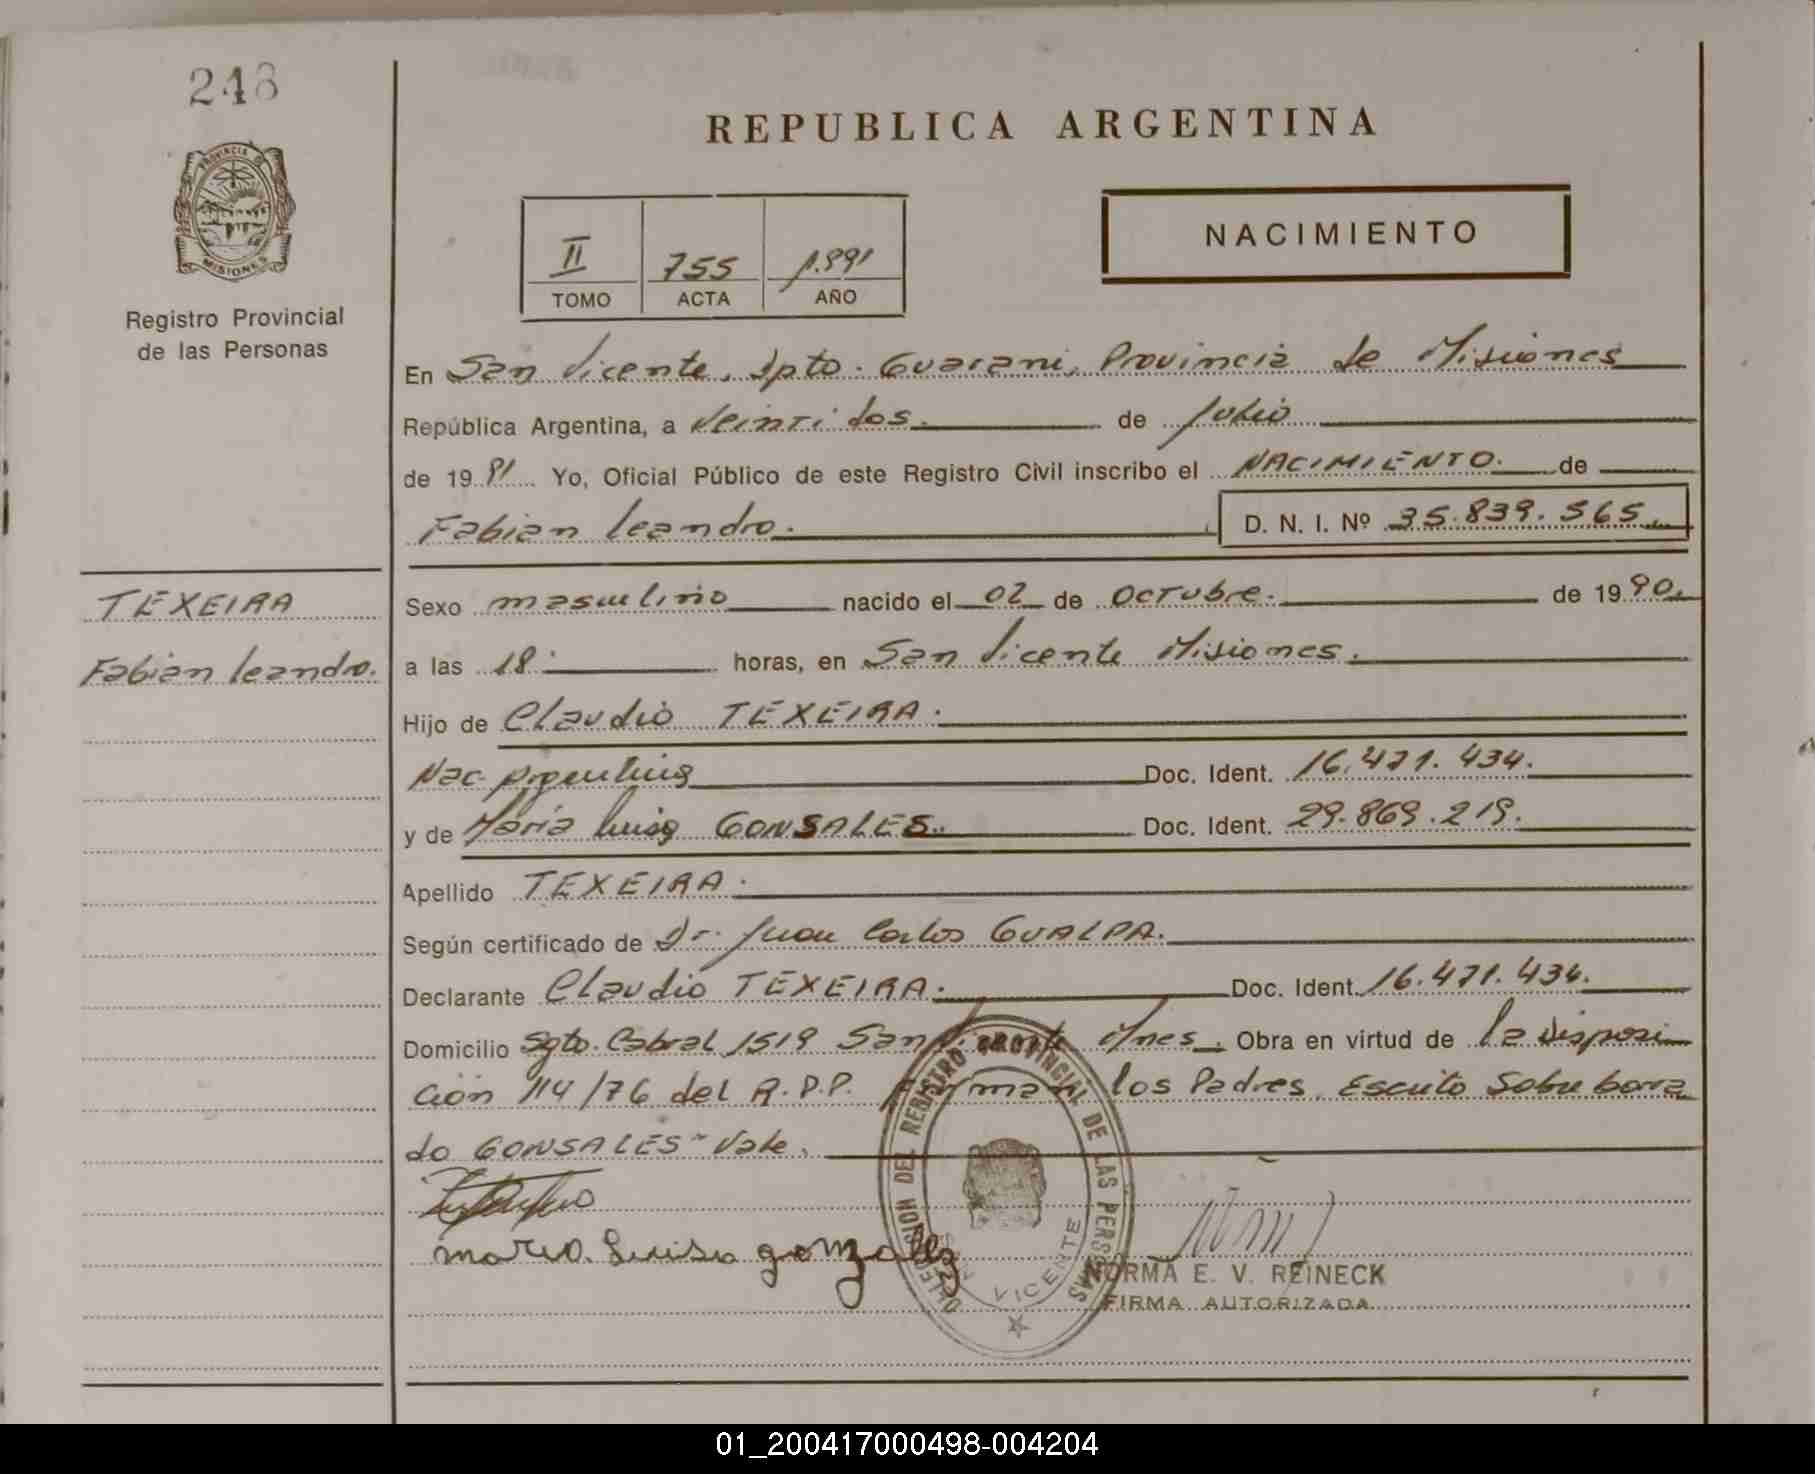 248
PROVINCIA DE
MISIONES
Registro Provincial
de las Personas
TEXEIRA
Fabian Leandro.
REPUBLICA ARGENTINA
II 755 1.991
TOMO ACTA AÑO
NACIMIENTO
En San Vicente, Dpto. Guarani, Provincia de Misiones
República Argentina, a Veintidos. de Julio
de 19 91 Yo, Oficial Público de este Registro Civil inscribo el NACIMIENTO. de
Fabian Leandro. D. N. I. Nº 35.839.565.
Sexo masculino nacido el 02 de Octubre. de 19 90.
a las 18. horas, en San Vicente Misiones.
Hijo de Claudio TEXEIRA.
Nac. Argentina Doc. Ident. 16.471.434.
y de Maria Luisa GONSALES. Doc. Ident. 29.869.219.
Apellido TEXEIRA.
Según certificado de Dr. Juan Carlos GUALPA.
Declarante Claudio TEXEIRA. Doc. Ident. 16.471.434.
Domicilio Sgto. Cabral 1519 San Vicente Mnes. Obra en virtud de la Disposi
ción 114/76 del R.P.P. Firman los Padres. Escrito Sobre borra
do GONSALES" Vale.
maria. Luisa gonzalez
DIRECCION DEL REGISTRO PROVINCIAL DE LAS PERSONAS
SAN VICENTE
NORMA E. V. REINECK
FIRMA AUTORIZADA
01_200417000498-004204